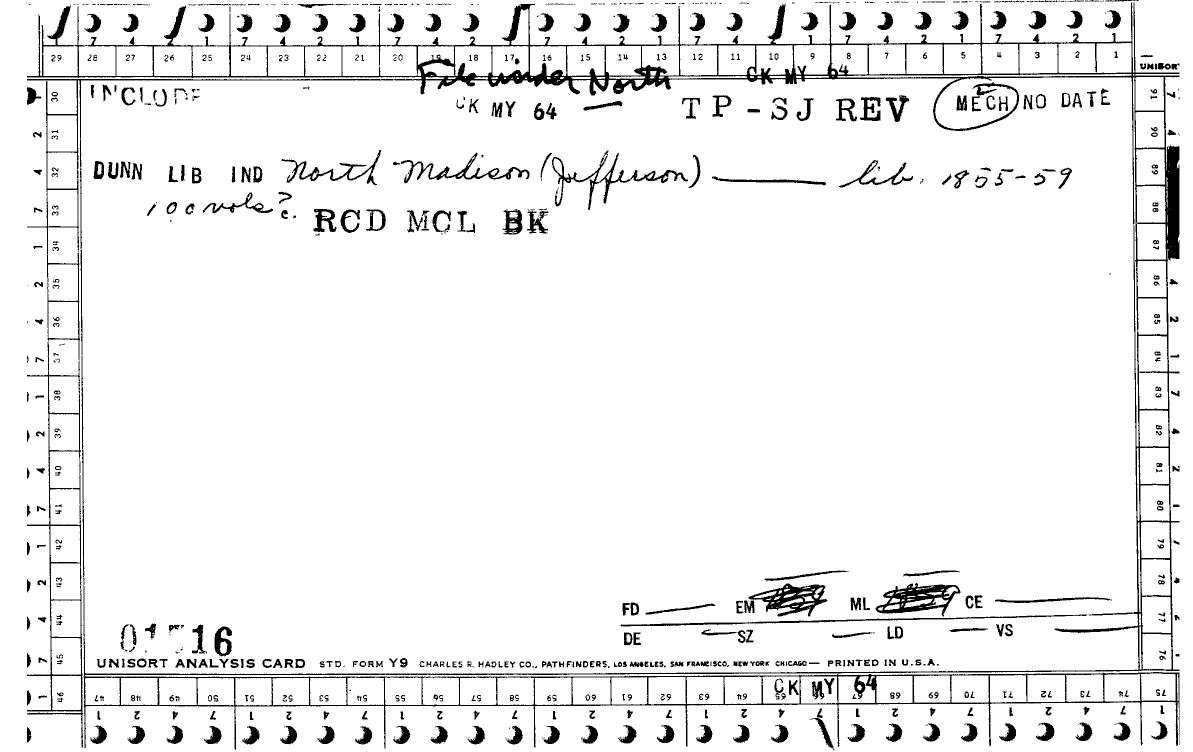 7 4 2 1 7 4 2 1 7 4 2 1 7 4 2 1 7 4 2 1 7 4 2 1
29 28 27 26 25 24 23 22 21 20 19 18 17 16 15 14 13 12 11 10 9 8 7 6 5 4 3 2 1
UNISORT
File under North CK MY 64
INCLUDE CK MY 64 TP-SJ REV MECH NO DATE
DUNN LIB IND North Madison (Jefferson) ——— lib. 1855-59
100 vols? RCD MCL BK
30 31 32 33 34 35 36 37 38 39 40 41 42 43 44 45 46
91 90 89 88 87 86 85 84 83 82 81 80 79 78 77 76 75
FD —— EM 1859 ML 1859 CE ——
DE — SZ — LD — VS ——
16
UNISORT ANALYSIS CARD STD. FORM Y9 CHARLES R. HADLEY CO., PATHFINDERS, LOS ANGELES, SAN FRANCISCO, NEW YORK CHICAGO — PRINTED IN U.S.A.
CK MY 64
47 48 49 50 51 52 53 54 55 56 57 58 59 60 61 62 63 64 65 66 67 68 69 70 71 72 73 74